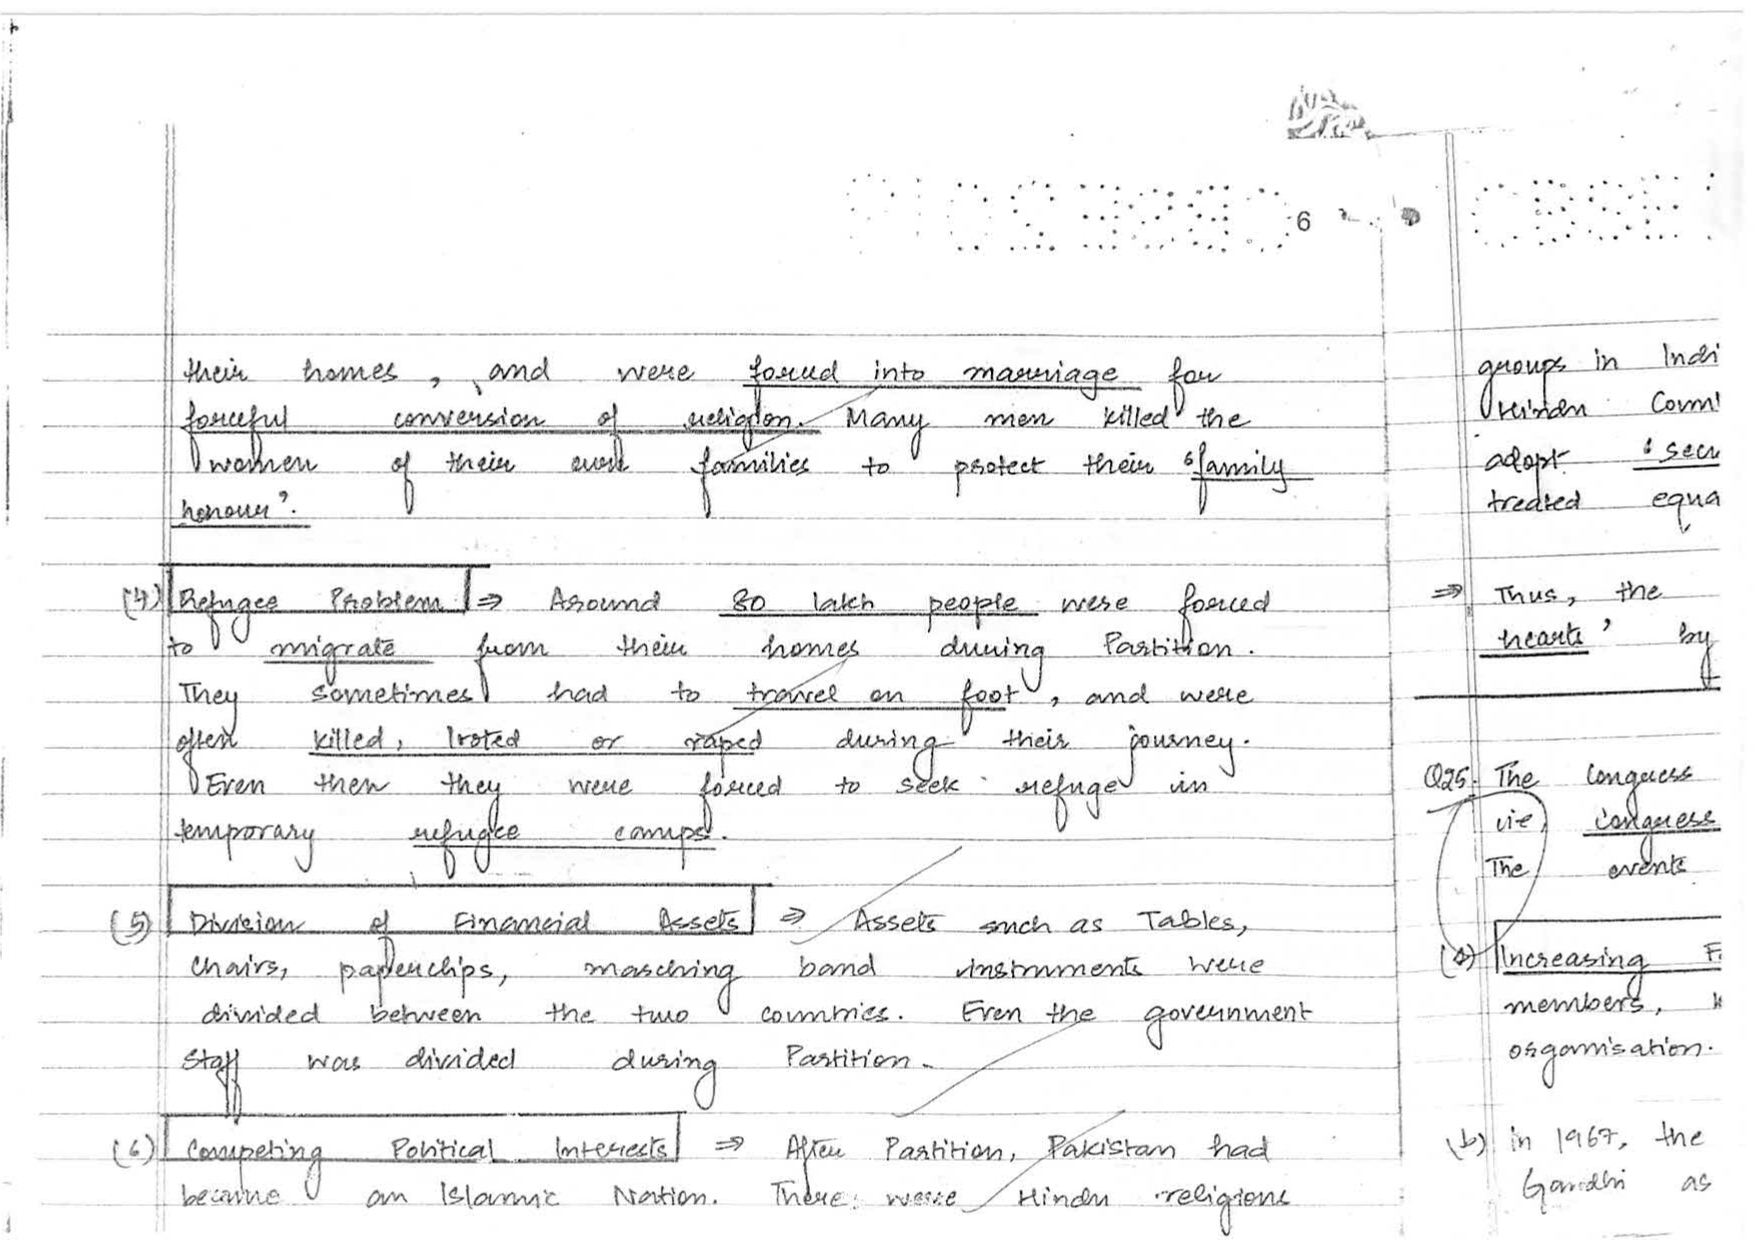 6
their homes, and were forced into marriage for
forceful conversion of religion. Many men killed the
women of their own families to protect their 'family
honour'.
(4) Refugee Problem ⇒ Around 80 lakh people were forced
to migrate from their homes during Partition.
They sometimes had to travel on foot, and were
often killed, looted or raped during their journey.
Even then they were forced to seek refuge in
temporary refugee camps.
(5) Division of Financial Assets ⇒ Assets such as Tables,
Chairs, paperclips, marching band instruments were
divided between the two countries. Even the government
staff was divided during Partition.
(6) Competing Political Interests ⇒ After Partition, Pakistan had
became an Islamic Nation. There were Hindu religious
CBSE
groups in Indi
Hindu Comm
adopt 'secu
treated equa
⇒ Thus, the
hearts' by
Q25. The Congress
ie, Congress
The events
(a) Increasing F
members,
organisation.
(b) in 1967, the
Gandhi as